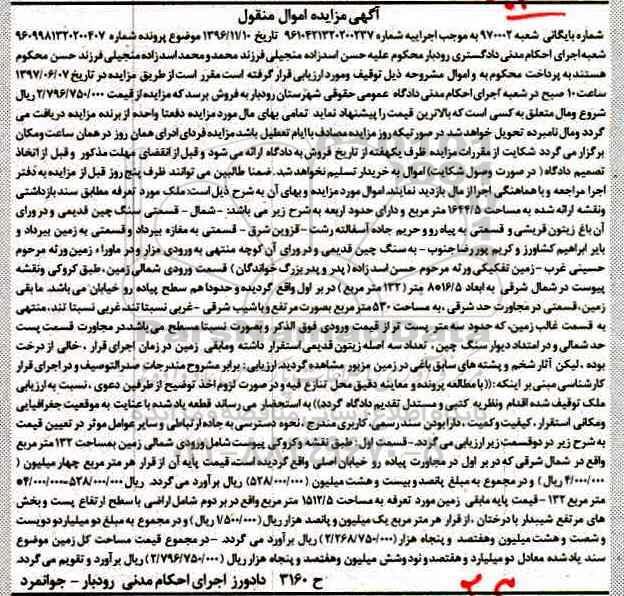 آگهی مزایده اموال منقول
شماره بایگانی شعبه ۹۷۰۰۰۲ به موجب اجراییه شماره ۹۶۱۰۴۲۱۳۲۰۲۰۰۲۳۷ تاریخ ۱۳۹۶/۱۱/۱۰ موضوع پرونده شماره ۹۶۰۹۹۸۱۳۲۰۲۰۰۴۰۷
شعبه اجرای احکام مدنی دادگستری رودبار محکوم علیه حسن اسدزاده منجیلی فرزند محمد و محمد اسدزاده منجیلی فرزند حسن محکوم
هستند به پرداخت محکوم به و اموال مشروحه ذیل توقیف و مورد ارزیابی قرار گرفته است مقرر است از طریق مزایده در تاریخ ۱۳۹۷/۰۶/۰۷
ساعت ۱۰ صبح در شعبه اجرای احکام مدنی دادگاه عمومی حقوقی شهرستان رودبار به فروش برسد که مزایده از قیمت ۲/۷۹۶/۷۵۰/۰۰۰ ریال
شروع و مال متعلق به کسی است که بالاترین قیمت را پیشنهاد نماید تمامی بهای مال مورد مزایده دفعتا واحده از برنده مزایده دریافت می
گردد و مال نامبرده تحویل خواهد شد در صورتیکه روز مزایده مصادف با ایام تعطیل باشد مزایده فردای اداری همان روز در همان ساعت و مکان
برگزار می گردد شکایت از مقررات مزایده ظرف یکهفته از تاریخ فروش به دادگاه ارائه می شود و قبل از انقضای مهلت مذکور و قبل از اتخاذ
تصمیم دادگاه ( در صورت وصول شکایت) اموال به خریدار تسلیم نخواهد شد. ضمنا طالبین می توانند ظرف پنج روز قبل از مزایده به دفتر
اجرا مراجعه و با هماهنگی اجرا از مال بازدید نمایند. اموال مورد مزایده و بهای آن به شرح ذیل است: ملک مورد تعرفه مطابق سند بازداشتی
و نقشه ارائه شده به مساحت ۱۶۴۴/۵ متر مربع و دارای حدود اربعه به شرح زیر می باشد: - شمال - قسمتی سنگ چین قدیمی و در ورای
آن باغ زیتون قریشی و قسمتی به پیاده رو و حریم جاده آسفالته رشت - قزوین شرق - قسمتی به مغازه بیرداد و قسمتی به زمین بیرداد و
بایر ابراهیم کشاورز و کریم پوررضا جنوب - به سنگ چین قدیمی و در ورای آن کوچه منتهی به ورودی مزار و در ماوراء زمین ورثه مرحوم
حسینی غرب - زمین تفکیکی ورثه مرحوم حسن اسدزاده ( پدر و پدر بزرگ خواندگان ) قسمت ورودی شمالی زمین، طبق کروکی و نقشه
پیوست در شمال شرقی به ابعاد ۸۰۱۶/۵ متر (۱۳۲ متر مربع) در بر اول واقع گردیده و حدودا هم سطح پیاده رو خیابان می باشد. مابقی
زمین، قسمتی در مجاورت حد شرقی، به مساحت ۵۳۰ متر مربع بصورت مرتفع و با شیب شرقی - غربی نسبتا تند، غربی نسبتا تند، منتهی
به قسمت غالب زمین، که حدود سه متر پست تر از قیمت ورودی فوق الذکر و بصورت نسبتا مسطح می باشد. در مجاورت قسمت پست
حد شمالی و در امتداد دیوار سنگ چین، تعداد سه اصله زیتون قدیمی استقرار داشته و مابقی زمین در زمان اجرای قرار، خالی از درخت
بوده، لیکن آثار شخم و پشته های سابق باغی در زمین مزبور مشاهده گردید. ارزیابی: برابر مشروح مندرجات صدرالتوصیف و در اجرای قرار
کارشناسی مبنی بر اینکه: ((با مطالعه پرونده و معاینه دقیق محل تنازع فیه و در صورت لزوم اخذ توضیح از طرفین دعوی، نسبت به ارزیابی
ملک توقیف شده اقدام و نظریه کتبی و مستدل تقدیم دادگاه گردد)) به استحضار می رساند قطعه یاد شده با عنایت به موقعیت جغرافیایی
و مکانی استقرار، کیفیت و کمیت، دارا بودن سند رسمی، کاربری مندرج، نحوه دسترسی به جاده ارتباطی و سایر عوامل موثر در تعیین قیمت
به شرح زیر در دو قسمت زیر ارزیابی می گردد. - قسمت اول: طبق نقشه و کروکی پیوست شامل ورودی شمالی زمین بمساحت ۱۳۲ متر مربع
واقع در شمال شرقی که در بر اول در مجاورت پیاده رو خیابان اصلی واقع گردیده است، قیمت پایه آن از قرار هر متر مربع چهار میلیون (
۴/۰۰۰/۰۰۰ ریال) و در مجموع به مبلغ پانصد و بیست و هشت میلیون (۵۲۸/۰۰۰/۰۰۰ ریال) برآورد می گردد. ریال ۵۲۸/۰۰۰/۰۰۰=۴/۰۰۰/۰۰۰*
متر مربع ۱۳۲ - قیمت پایه مابقی زمین مورد تعرفه به مساحت ۱۵۱۲/۵ متر مربع واقع در بر دوم شامل اراضی با سطح ارتفاع پست و بخش
های مرتفع شیبدار با درختان، از قرار هر متر مربع یک میلیون و پانصد هزار ریال (۱/۵۰۰/۰۰۰ ریال) و در مجموع به مبلغ دو میلیارد و دویست
و شصت و هشت میلیون و هفتصد و پنجاه هزار (۲/۲۶۸/۷۵۰/۰۰۰ ریال) برآورد می گردد. - در مجموع قیمت مساحت کل زمین موضوع
سند یاد شده معادل دو میلیارد و هفتصد و نود و شش میلیون و هفتصد و پنجاه هزار ریال (۲/۷۹۶/۷۵۰/۰۰۰ ریال) برآورد و تقویم می گردد.
ح ۳۱۶۰ دادورز اجرای احکام مدنی رودبار - جوانمرد